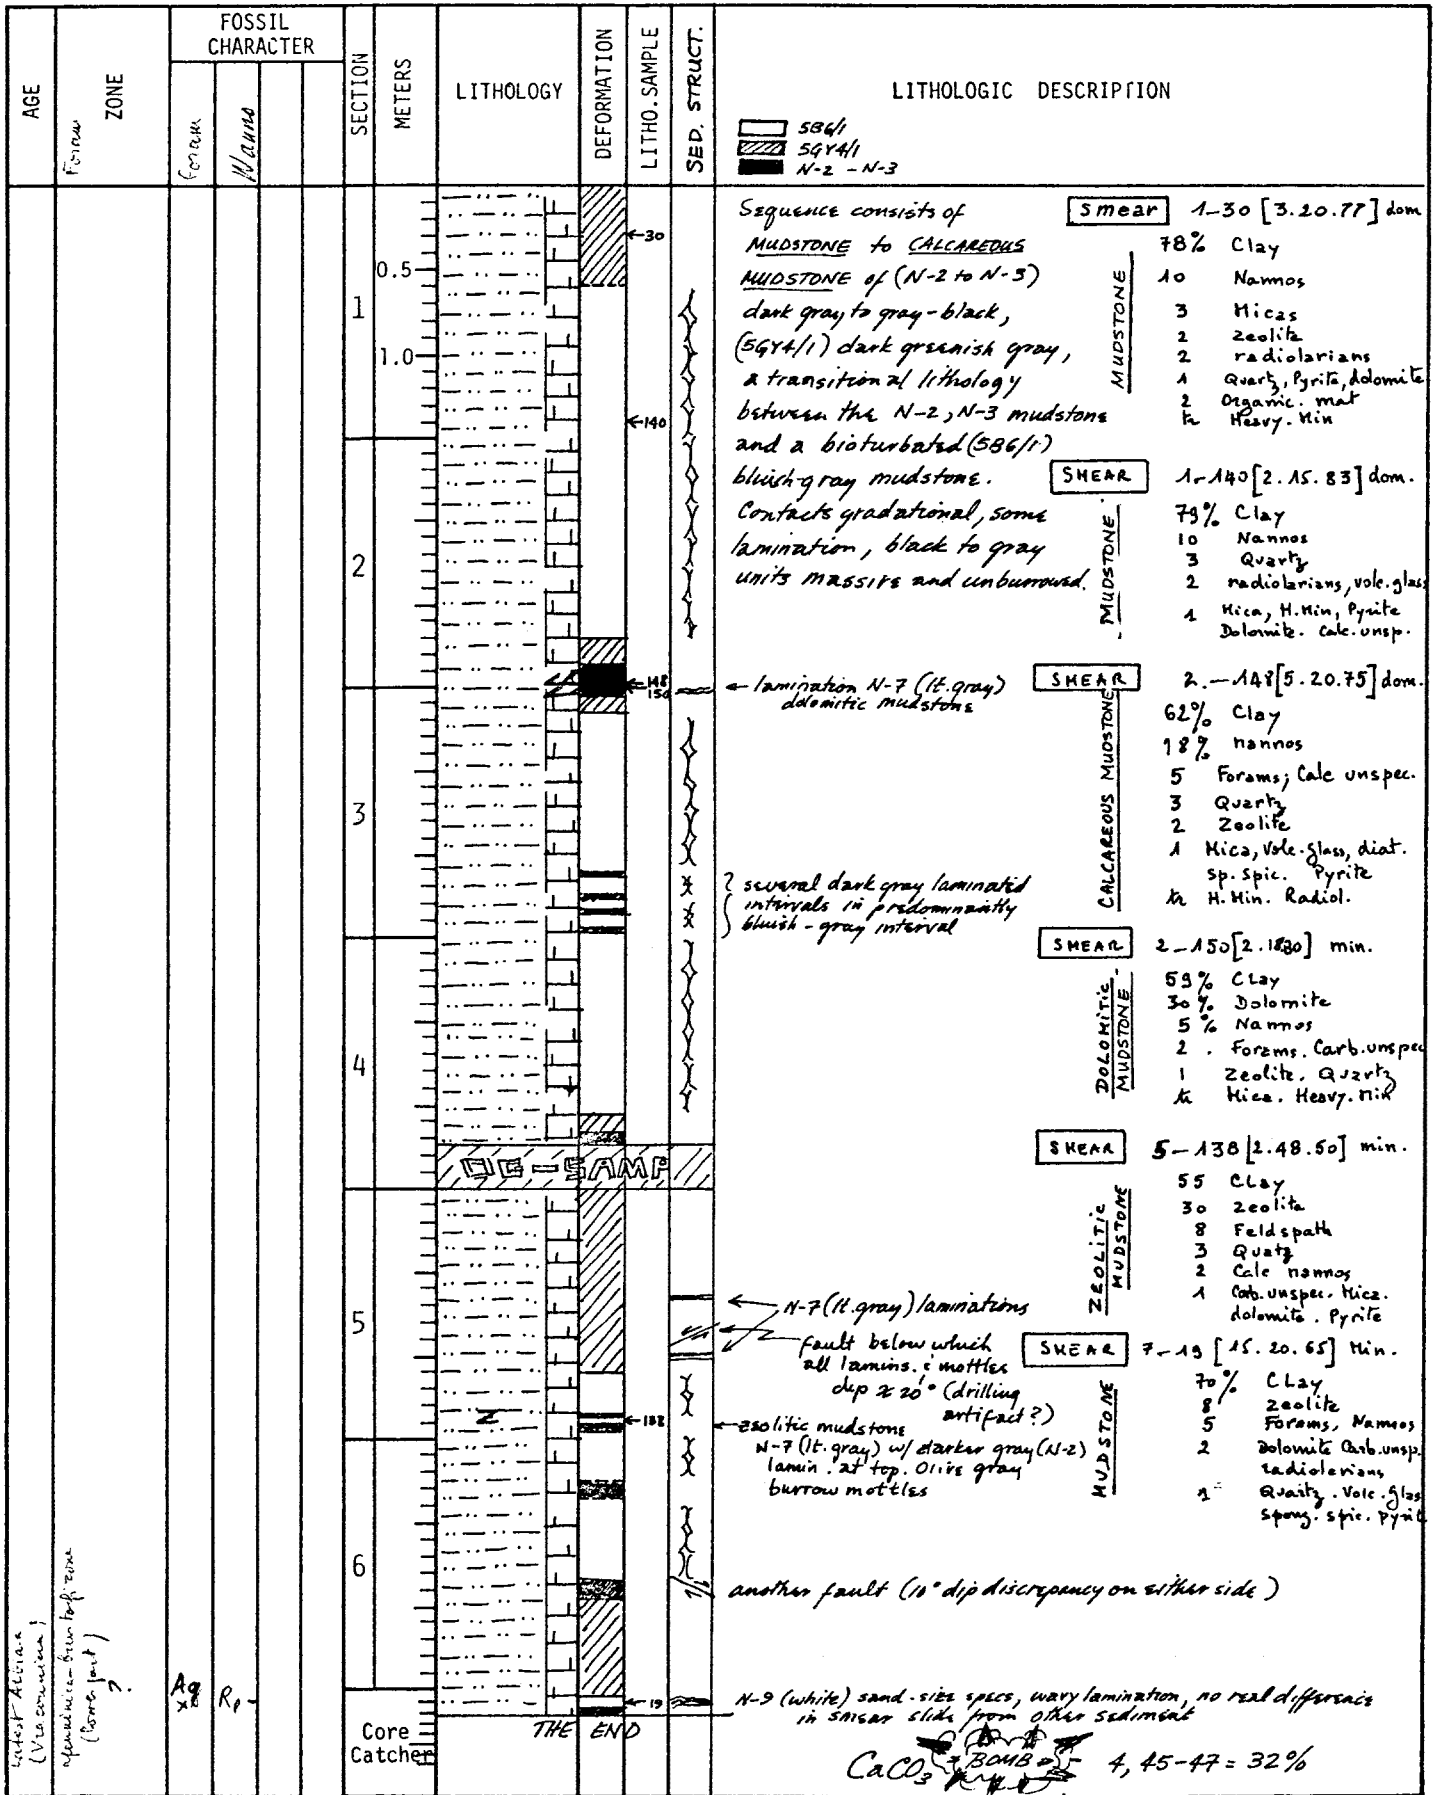 AGE
ZONE
Foram
FOSSIL
CHARACTER
Foram
Nanno
SECTION
METERS
LITHOLOGY
DEFORMATION
LITHO. SAMPLE
SED. STRUCT.
LITHOLOGIC DESCRIPTION
5B6/1
5GY4/1
N-2 - N-3
0.5
1.0
1
2
3
4
5
6
←30
←140
148
150
←132
←19
OG-SAMP
Z
THE END
Core
Catcher
Latest Albian
(Vraconian)
(lower part)
?
Ag
Rp
Sequence consists of
MUDSTONE to CALCAREOUS
MUDSTONE of (N-2 to N-3)
dark gray to gray-black,
(5GY4/1) dark greenish gray,
a transitional lithology
between the N-2, N-3 mudstone
and a bioturbated (5B6/1)
bluish-gray mudstone.
Contacts gradational, some
lamination, black to gray
units massive and unburrowed.
← lamination N-7 (lt. gray)
dolomitic mudstone
several dark gray laminated
intervals in predominantly
bluish-gray interval
N-7 (lt. gray) laminations
fault below which
all lamins. & mottles
dip ≈ 20° (drilling
artifact?)
zeolitic mudstone
N-7 (lt. gray) w/ darker gray (N-2)
lamin. at top. Olive gray
burrow mottles
another fault (10° dip discrepancy on either side)
N-9 (white) sand-size specs, wavy lamination, no real difference
in smear slide from other sediment
CaCO3 BOMB 4, 45-47 = 32%
Smear 1-30 [3.20.77] dom
MUDSTONE
78% Clay
10 Nannos
3 Micas
2 Zeolite
2 radiolarians
1 Quartz, Pyrite, dolomite
2 Organic. mat
tr Heavy. Min
SMEAR 1-140 [2.15.83] dom.
MUDSTONE
79% Clay
10 Nannos
3 Quartz
2 radiolarians, volc. glass
1 Mica, H. Min, Pyrite
Dolomite. Calc. unsp.
SMEAR 2.-148 [5.20.75] dom.
CALCAREOUS MUDSTONE
62% Clay
18% nannos
5 Forams; Calc unspec.
3 Quartz
2 Zeolite
1 Mica, Volc. glass, diat.
sp. spic. Pyrite
tr H. Min. Radiol.
SMEAR 2-150 [2.18.80] min.
DOLOMITIC MUDSTONE
59% Clay
30% Dolomite
5% Nannos
2. Forams. Carb. unspec
1 Zeolite. Quartz
tr Mica. Heavy. Min
SMEAR 5-138 [2.48.50] min.
ZEOLITIC MUDSTONE
55 Clay
30 Zeolite
8 Feldspath
3 Quatz
2 Calc nannos
1 Carb. unspec. Mica.
dolomite. Pyrite
SMEAR 7-19 [15.20.65] Min.
MUDSTONE
70% Clay
8 Zeolite
5 Forams, Nannos
2 Dolomite Carb. unsp.
radiolarians
1 Quartz. Volc. glas
Spong. spic. pyrit